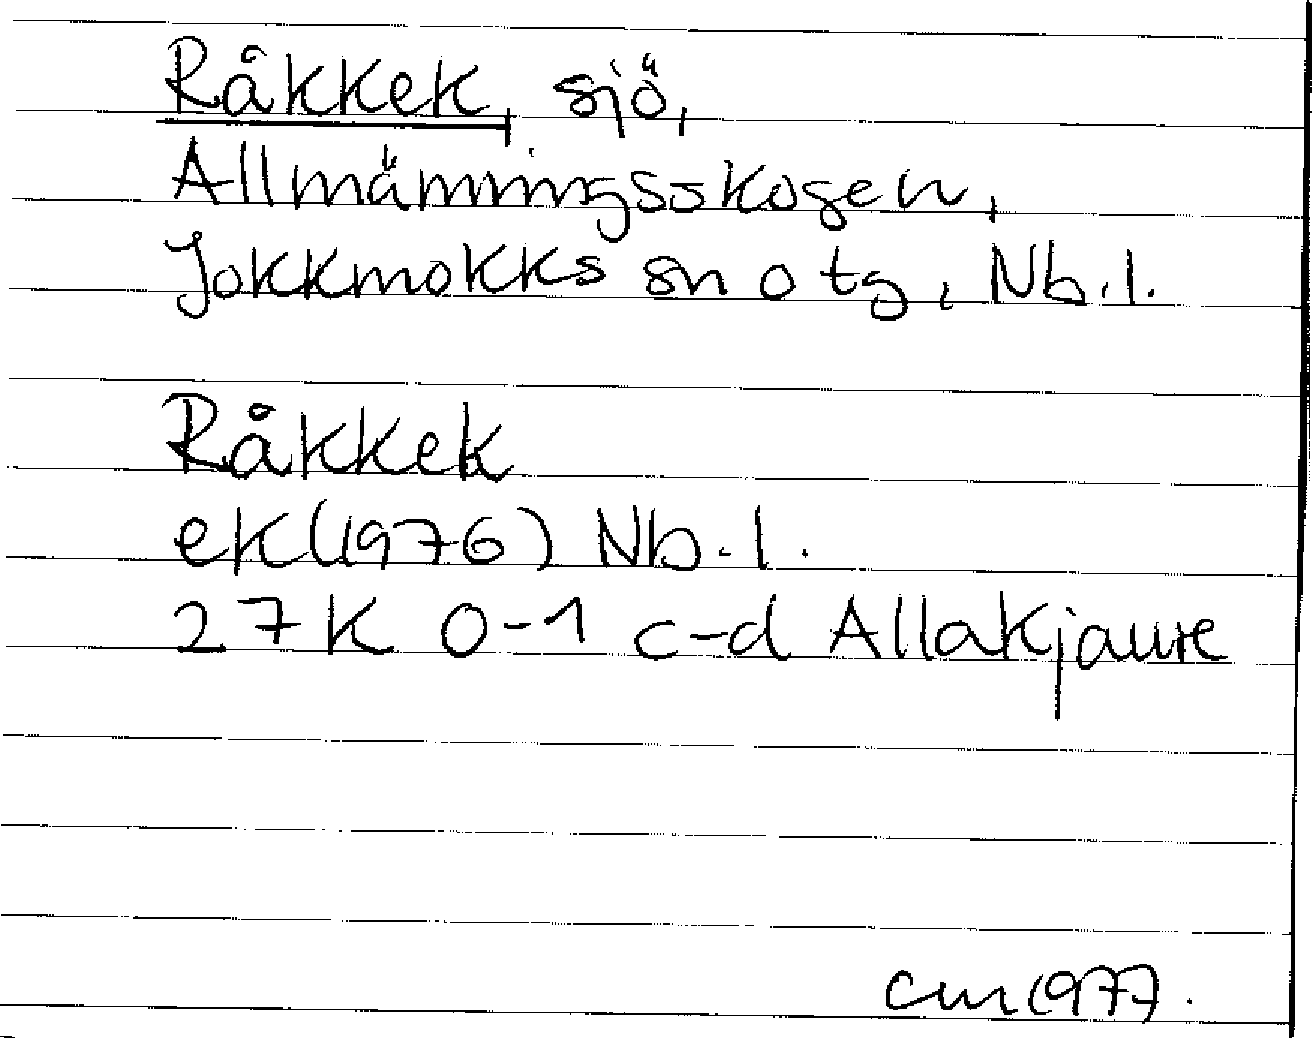 Råkkek, sjö,
Allmänningsskogen,
Jokkmokks sn o tg, Nb.l.
Råkkek
ek(1976) Nb.l.
27K 0-1 c-d Allakjaure
cm 1977.